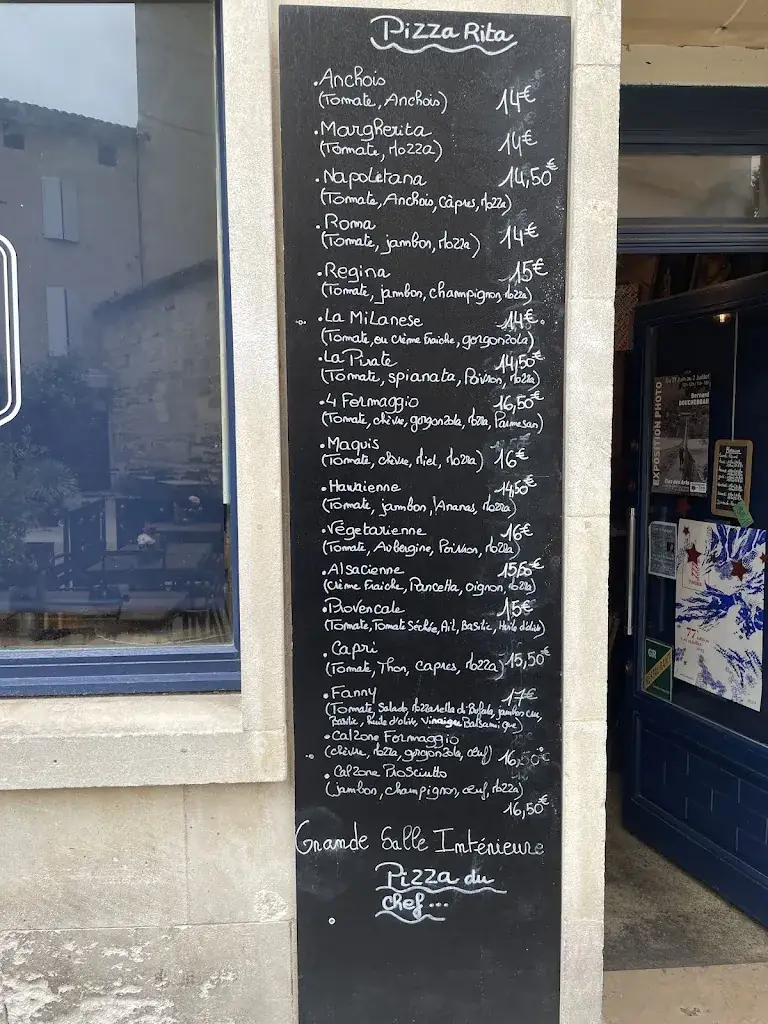 Pizza Rita
.Anchois
(Tomate, Anchois) 14€
.Margherita
(Tomate, Mozza) 14€
.Napoletana 14,50€
(Tomate, Anchois, Câpres, Mozza)
.Roma
(Tomate, jambon, Mozza) 14€
.Regina 15€
(Tomate, jambon, champignon, Mozza)
.La Milanese 14€
(Tomate, ou crème Fraiche, gorgonzola)
.La Pirate 14,50€
(Tomate, spianata, Poivron, Mozza)
.4 Formaggio 16,50€
(Tomate, chèvre, gorgonzola, Mozza, Parmesan)
.Maquis
(Tomate, chèvre, Miel, Mozza) 16€
.Hawaienne 14,50€
(Tomate, jambon, Ananas, Mozza)
.Végetarienne 16€
(Tomate, Aubergine, Poivron, Mozza)
.Alsacienne 15,50€
(Crème Fraiche, Pancetta, oignon, Mozza)
.Provencale 15€
(Tomate, Tomate Séchée, Ail, Basilic, Huile d'olive)
.Capri
(Tomate, Thon, Capres, Mozza) 15,50€
.Fanny 17€
(Tomate, Salade, Mozzarella di Buffala, jambon cru,
Basilic, Huile d'olive, Vinaigre Balsamique)
.Calzone Formaggio
(chèvre, Mozza, gorgonzola, œuf) 16,50€
.Calzone Prosciutto
(jambon, champignon, œuf, Mozza)
16,50€
Grande Salle Intérieure
Pizza du
chef...
EXPOSITION PHOTO
Bernard
GR
77